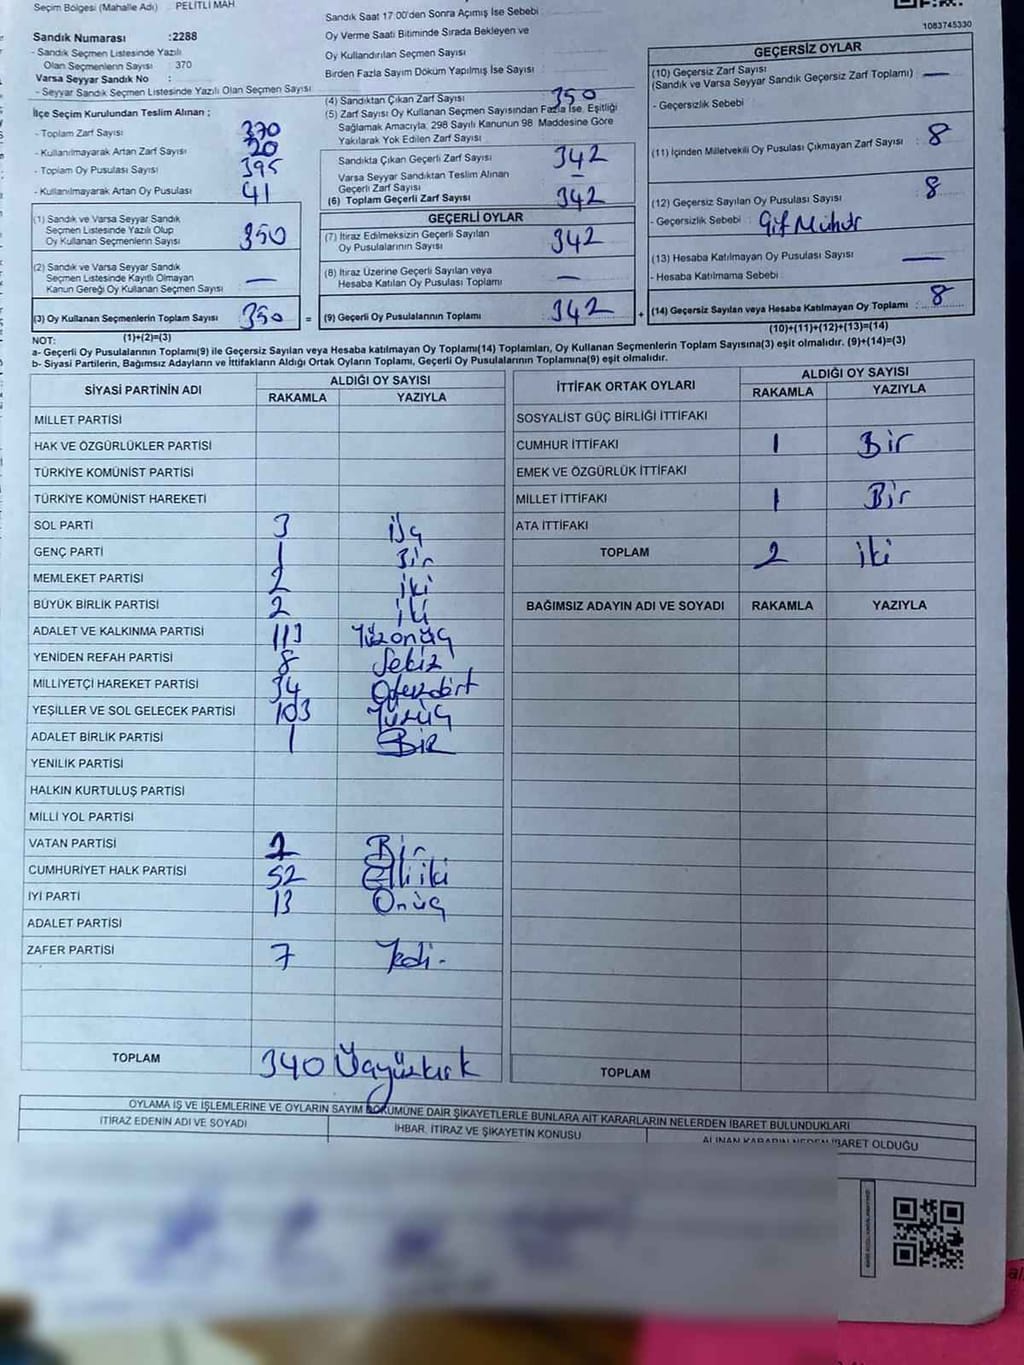 Seçim Bölgesi (Mahalle Adı) : PELİTLİ MAH
Sandık Numarası :2288
- Sandık Seçmen Listesinde Yazılı
Olan Seçmenlerin Sayısı : 370
Varsa Seyyar Sandık No :
- Seyyar Sandık Seçmen Listesinde Yazılı Olan Seçmen Sayısı
İlçe Seçim Kurulundan Teslim Alınan ;
- Toplam Zarf Sayısı 370
- Kullanılmayarak Artan Zarf Sayısı 20
- Toplam Oy Pusulası Sayısı 395
- Kullanılmayarak Artan Oy Pusulası 41
(1) Sandık ve Varsa Seyyar Sandık
Seçmen Listesinde Yazılı Olup
Oy Kullanan Seçmenlerin Sayısı 350
(2) Sandık ve Varsa Seyyar Sandık
Seçmen Listesinde Kayıtlı Olmayan
Kanun Gereği Oy Kullanan Seçmen Sayısı —
(3) Oy Kullanan Seçmenlerin Toplam Sayısı 350 =
(1)+(2)=(3)
Sandık Saat 17:00'den Sonra Açımış İse Sebebi :
Oy Verme Saati Bitiminde Sırada Bekleyen ve
Oy Kullandırılan Seçmen Sayısı
Birden Fazla Sayım Döküm Yapılmış İse Sayısı
(4) Sandıktan Çıkan Zarf Sayısı 350
(5) Zarf Sayısı Oy Kullanan Seçmen Sayısından Fazla İse, Eşitliği
Sağlamak Amacıyla, 298 Sayılı Kanunun 98 Maddesine Göre
Yakılarak Yok Edilen Zarf Sayısı
Sandıkta Çıkan Geçerli Zarf Sayısı 342
Varsa Seyyar Sandıktan Teslim Alınan
Geçerli Zarf Sayısı —
(6) Toplam Geçerli Zarf Sayısı 342
GEÇERLİ OYLAR
(7) İtiraz Edilmeksizin Geçerli Sayılan
Oy Pusulalarının Sayısı 342
(8) İtiraz Üzerine Geçerli Sayılan veya
Hesaba Katılan Oy Pusulası Toplamı —
(9) Geçerli Oy Pusulalarının Toplamı 342 +
1083745330
GEÇERSİZ OYLAR
(10) Geçersiz Zarf Sayısı
(Sandık ve Varsa Seyyar Sandık Geçersiz Zarf Toplamı) —
- Geçersizlik Sebebi
(11) İçinden Milletvekili Oy Pusulası Çıkmayan Zarf Sayısı : 8
(12) Geçersiz Sayılan Oy Pusulası Sayısı : 8
- Geçersizlik Sebebi : Çift Mühür
(13) Hesaba Katılmayan Oy Pusulası Sayısı —
- Hesaba Katılmama Sebebi
(14) Geçersiz Sayılan veya Hesaba Katılmayan Oy Toplamı : 8
(10)+(11)+(12)+(13)=(14)
NOT:
a- Geçerli Oy Pusulalarının Toplamı(9) ile Geçersiz Sayılan veya Hesaba katılmayan Oy Toplamı(14) Toplamları, Oy Kullanan Seçmenlerin Toplam Sayısına(3) eşit olmalıdır. (9)+(14)=(3)
b- Siyasi Partilerin, Bağımsız Adayların ve İttifakların Aldığı Ortak Oyların Toplamı, Geçerli Oy Pusulalarının Toplamına(9) eşit olmalıdır.
SİYASİ PARTİNİN ADI ALDIĞI OY SAYISI
RAKAMLA YAZIYLA
MİLLET PARTİSİ
HAK VE ÖZGÜRLÜKLER PARTİSİ
TÜRKİYE KOMÜNİST PARTİSİ
TÜRKİYE KOMÜNİST HAREKETİ
SOL PARTİ 3 üç
GENÇ PARTİ 1 Bir
MEMLEKET PARTİSİ 2 iki
BÜYÜK BİRLİK PARTİSİ 2 iki
ADALET VE KALKINMA PARTİSİ 113 Yüzonüç
YENİDEN REFAH PARTİSİ 8 Sekiz
MİLLİYETÇİ HAREKET PARTİSİ 34 Otuzdört
YEŞİLLER VE SOL GELECEK PARTİSİ 103 Yüzüç
ADALET BİRLİK PARTİSİ 1 BİR
YENİLİK PARTİSİ
HALKIN KURTULUŞ PARTİSİ
MİLLİ YOL PARTİSİ
VATAN PARTİSİ 1 Bir
CUMHURİYET HALK PARTİSİ 52 Elliiki
İYİ PARTİ 13 Onüç
ADALET PARTİSİ
ZAFER PARTİSİ 7 Yedi-
TOPLAM 340 Üçyüzkırk
İTTİFAK ORTAK OYLARI ALDIĞI OY SAYISI
RAKAMLA YAZIYLA
SOSYALİST GÜÇ BİRLİĞİ İTTİFAKI
CUMHUR İTTİFAKI 1 Bir
EMEK VE ÖZGÜRLÜK İTTİFAKI
MİLLET İTTİFAKI 1 Bir
ATA İTTİFAKI
TOPLAM 2 iki
BAĞIMSIZ ADAYIN ADI VE SOYADI RAKAMLA YAZIYLA
TOPLAM
OYLAMA İŞ VE İŞLEMLERİNE VE OYLARIN SAYIM DÖKÜMÜNE DAİR ŞİKAYETLERLE BUNLARA AİT KARARLARIN NELERDEN İBARET BULUNDUKLARI
İTİRAZ EDENİN ADI VE SOYADI İHBAR, İTİRAZ VE ŞİKAYETİN KONUSU ALINAN KARARIN NEDEN İBARET OLDUĞU